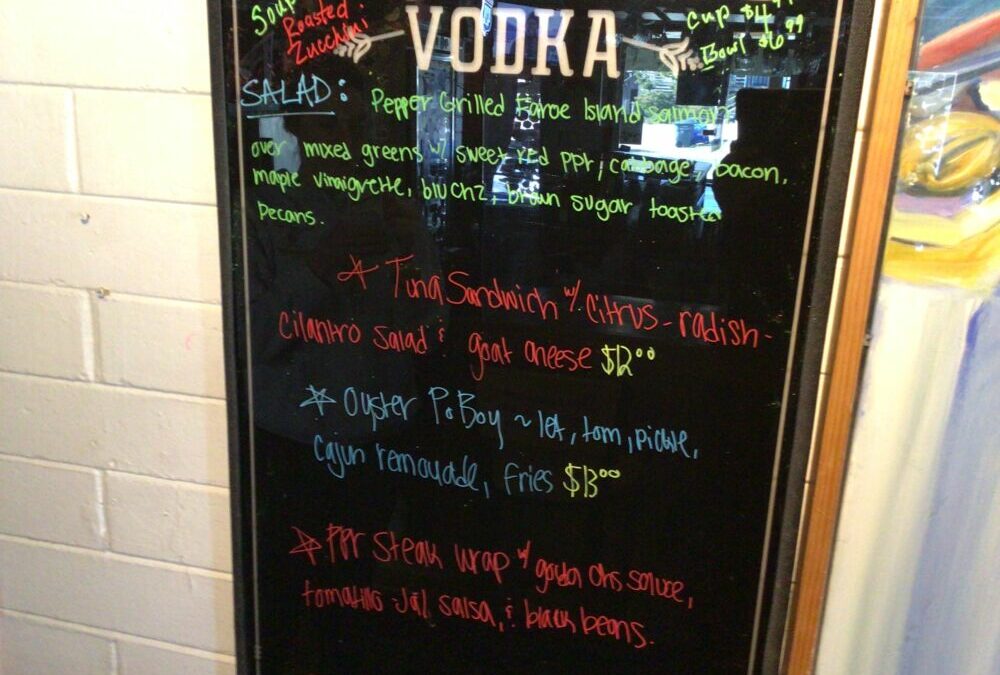 Soup
Roasted
Zucchini
VODKA
Cup $4.99
Bowl $6.99
SALAD: Pepper Grilled Faroe Island salmon
over mixed greens w/ sweet red ppr, cabbage, bacon,
maple vinaigrette, bluchz, brown sugar toasted
pecans.
Tuna Sandwich w/ citrus-radish-
cilantro salad & goat cheese $12.00
Oyster Po Boy ~ let, tom, pickle,
cajun remoulade, fries $13.00
PPr Steak wrap w/ gouda chs sauce,
tomatillo-Jal salsa, & black beans.